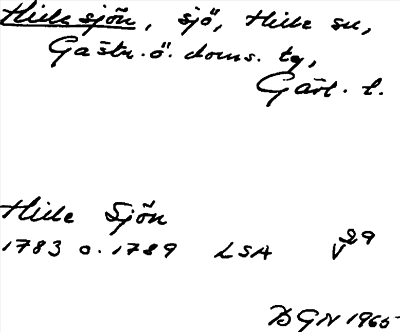 Hille sjön, sjö, Hille sn,
Gästr. ö. doms. tg,
Gävl. l.
Hille Sjön
1783 o. 1789 LSA V29
DGN 1965